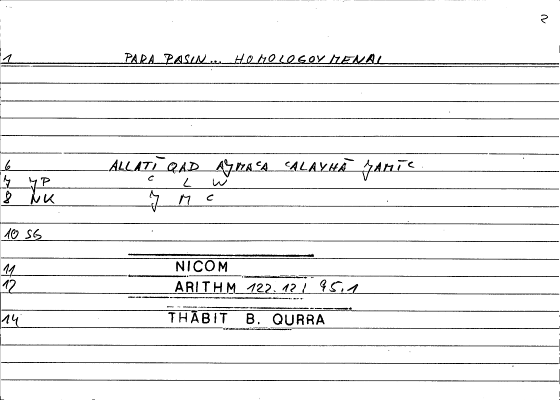 2
1 PARA PASIN... HOMOLOGOYMENAI
6 ALLATĪ QAD AJMAᶜA ᶜALAYHĀ JAMĪᶜ
7 JP ᶜ L W
8 NK J M ᶜ
10 SG
11 NICOM
12 ARITHM 122.12 / 95.1
14 THĀBIT B. QURRA